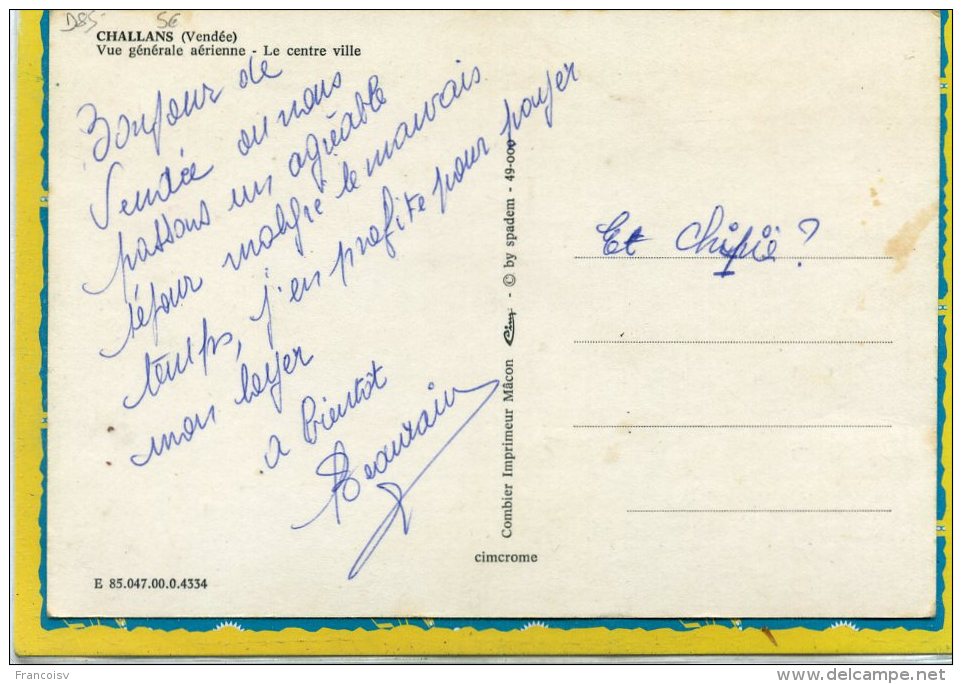 D85- 5€
CHALLANS (Vendée)
Vue générale aérienne - Le centre ville
Bonjour de
Vendée ou nous
passons un agréable
séjour malgré le mauvais
temps, j'en profite pour payer
mon loyer
a bientôt
Beauvain
Et Chipie ?
Combier Imprimeur Mâcon - Cim - © by spadem - 49-000
cimcrome
E 85.047.00.0.4334
Francoisv
www.delcampe.net